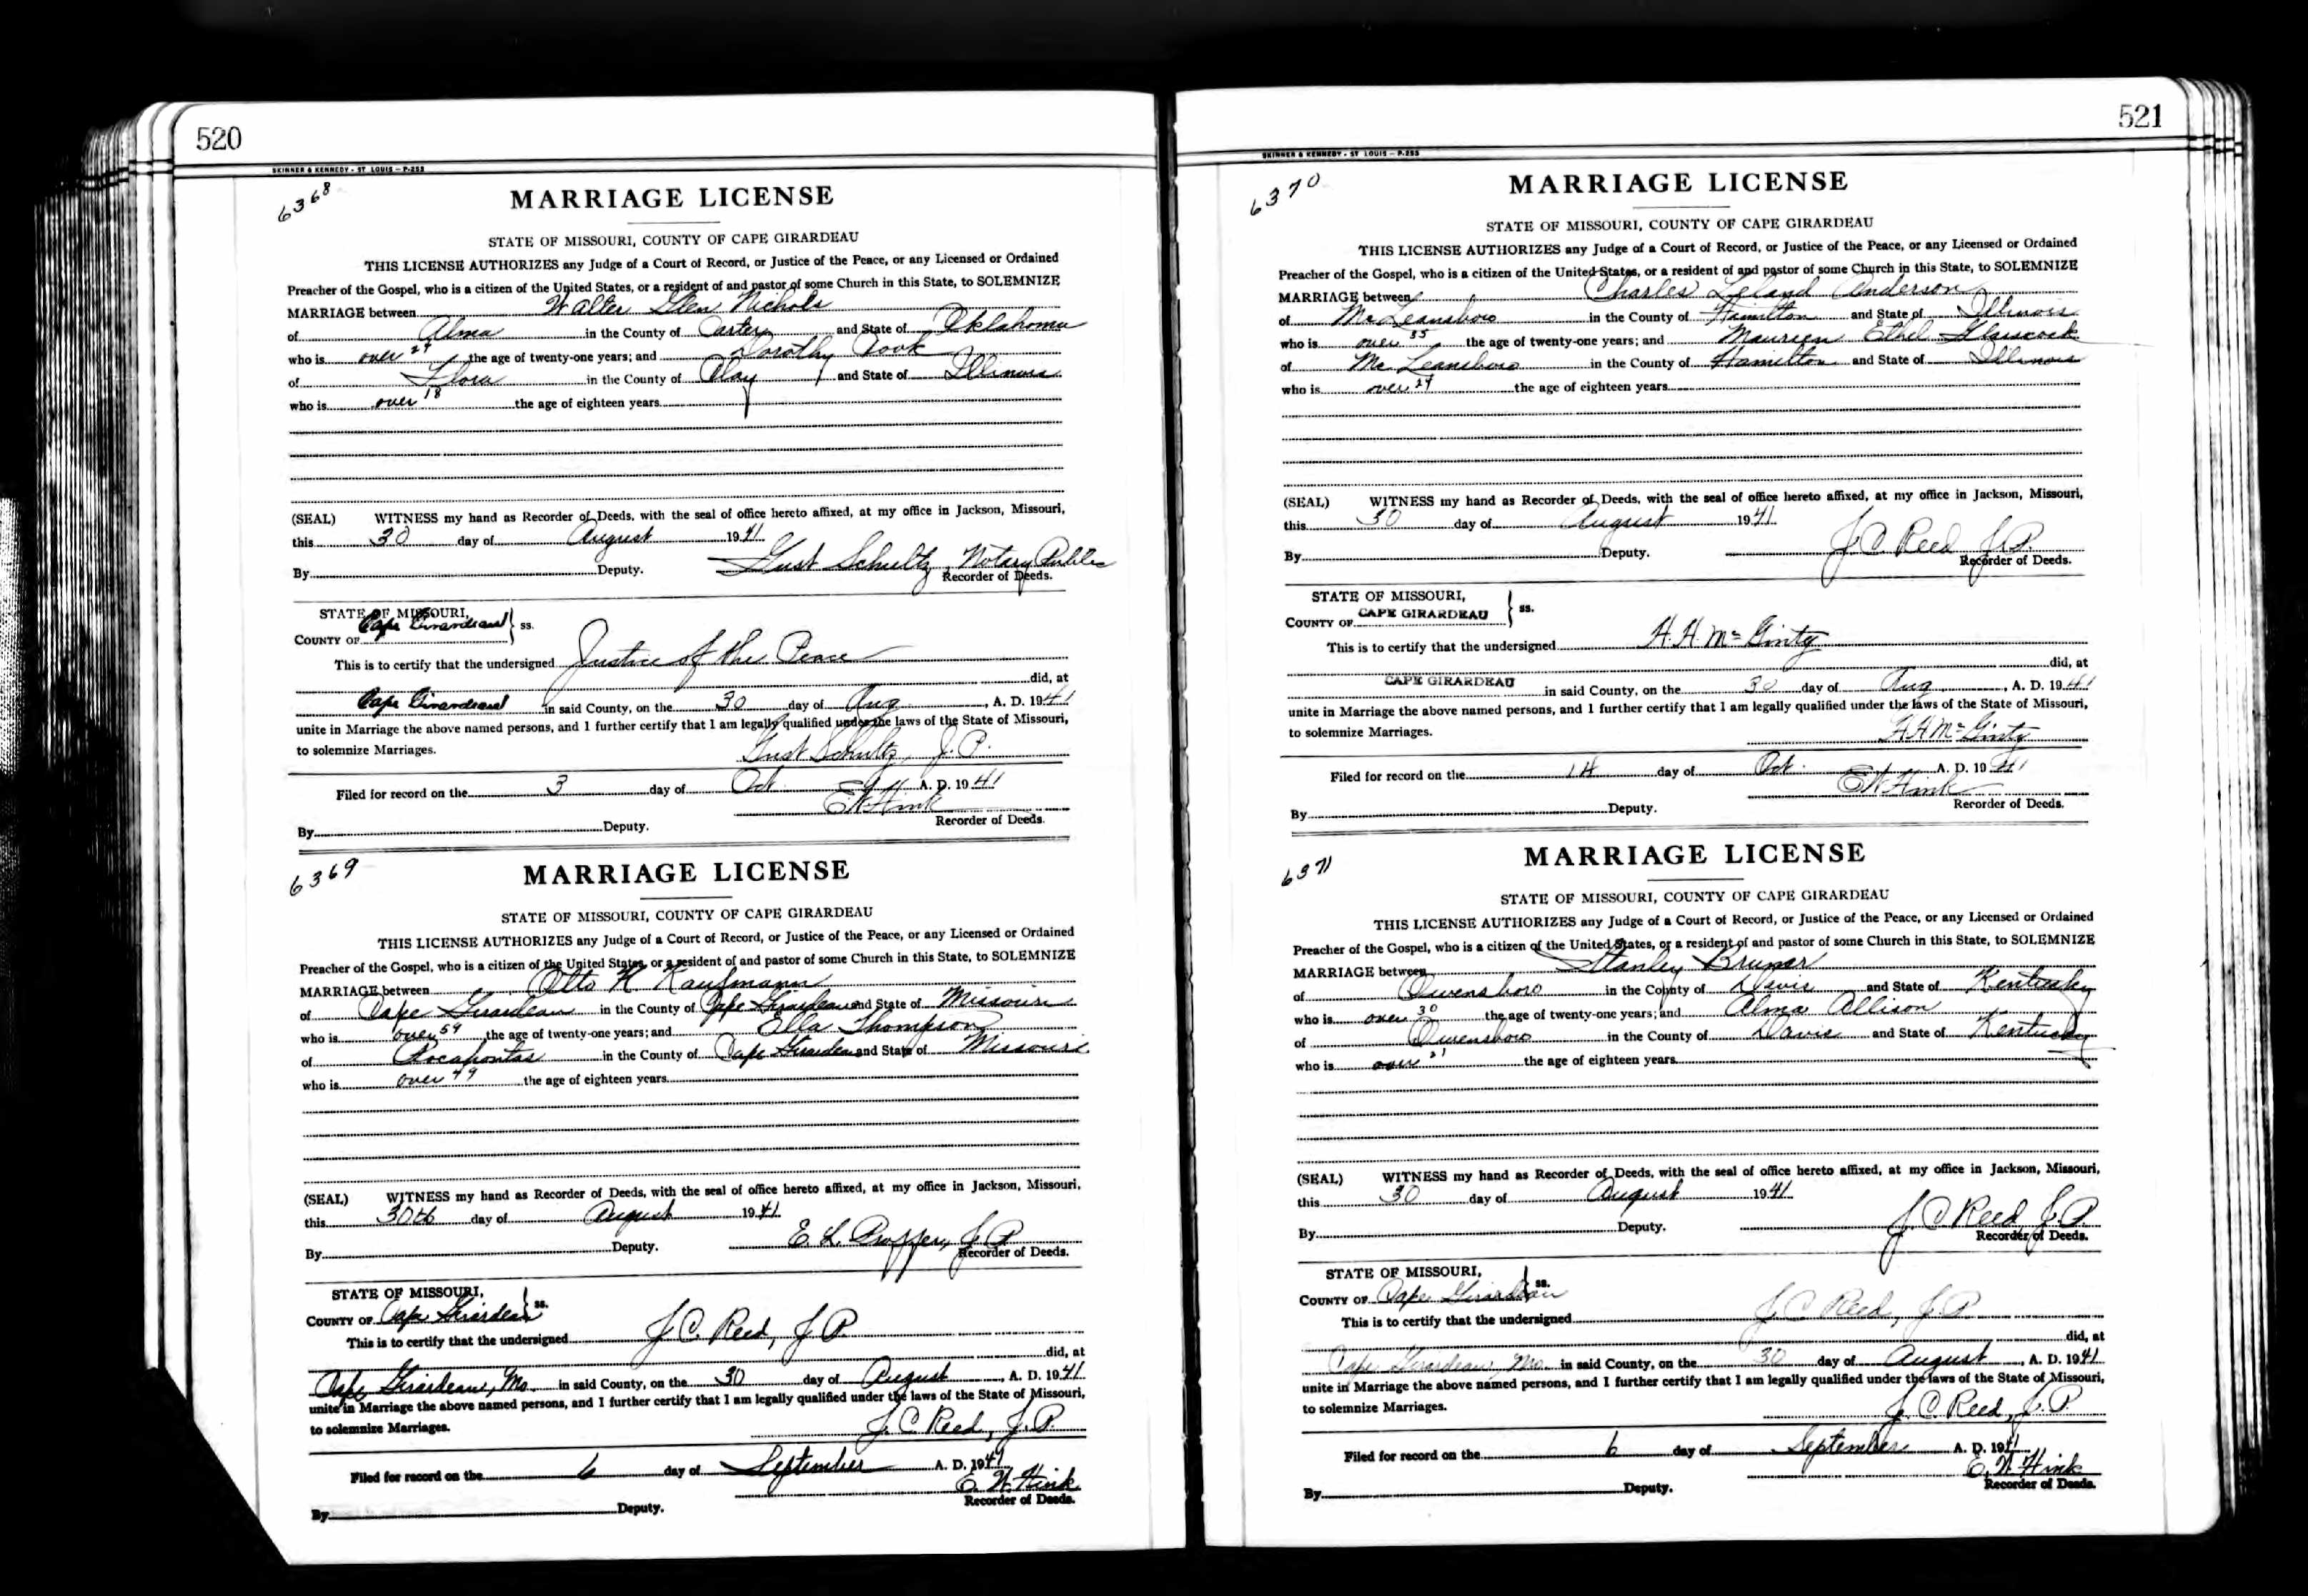 520
SKINNER & KENNEDY - ST LOUIS - P-253
6368
MARRIAGE LICENSE
STATE OF MISSOURI, COUNTY OF CAPE GIRARDEAU
THIS LICENSE AUTHORIZES any Judge of a Court of Record, or Justice of the Peace, or any Licensed or Ordained
Preacher of the Gospel, who is a citizen of the United States, or a resident of and pastor of some Church in this State, to SOLEMNIZE
MARRIAGE between Walter Glen Nichols
of Alma in the County of Carter and State of Oklahoma
who is over 24 the age of twenty-one years; and Dorothy
of Flora in the County of Clay and State of Illinois
who is over 18 the age of eighteen years
(SEAL) WITNESS my hand as Recorder of Deeds, with the seal of office hereto affixed, at my office in Jackson, Missouri,
this 30 day of August 1941
By Deputy. Gust Schultz, Notary Public
Recorder of Deeds.
STATE OF MISSOURI,
COUNTY OF Cape Girardeau } ss.
This is to certify that the undersigned Justice of the Peace
did, at
Cape Girardeau in said County, on the 30 day of Aug, A. D. 1941
unite in Marriage the above named persons, and I further certify that I am legally qualified under the laws of the State of Missouri,
to solemnize Marriages. Gust Schultz, J. P.
Filed for record on the 3 day of Oct A. D. 1941
E W Hink
By Deputy. Recorder of Deeds.
6369
MARRIAGE LICENSE
STATE OF MISSOURI, COUNTY OF CAPE GIRARDEAU
THIS LICENSE AUTHORIZES any Judge of a Court of Record, or Justice of the Peace, or any Licensed or Ordained
Preacher of the Gospel, who is a citizen of the United States, or a resident of and pastor of some Church in this State, to SOLEMNIZE
MARRIAGE between Otto H. Kaufmann
of Cape Girardeau in the County of Cape Girardeau and State of Missouri
who is over 59 the age of twenty-one years; and Ella Thompson
of Pocahontas in the County of Cape Girardeau and State of Missouri
who is over 49 the age of eighteen years
(SEAL) WITNESS my hand as Recorder of Deeds, with the seal of office hereto affixed, at my office in Jackson, Missouri,
this 30th day of August 1941
By Deputy. E. L. Proffer, J. P.
Recorder of Deeds.
STATE OF MISSOURI,
COUNTY OF Cape Girardeau } ss.
This is to certify that the undersigned J. C. Reed, J. P.
did, at
Cape Girardeau, Mo. in said County, on the 30 day of August, A. D. 1941
unite in Marriage the above named persons, and I further certify that I am legally qualified under the laws of the State of Missouri,
to solemnize Marriages. J. C. Reed, J. P.
Filed for record on the 6 day of September A. D. 1941
E. W. Hink
By Deputy. Recorder of Deeds.
521
SKINNER & KENNEDY - ST LOUIS - P-253
6370
MARRIAGE LICENSE
STATE OF MISSOURI, COUNTY OF CAPE GIRARDEAU
THIS LICENSE AUTHORIZES any Judge of a Court of Record, or Justice of the Peace, or any Licensed or Ordained
Preacher of the Gospel, who is a citizen of the United States, or a resident of and pastor of some Church in this State, to SOLEMNIZE
MARRIAGE between Charles Leland Anderson
of McLeansboro in the County of Hamilton and State of Illinois
who is over 35 the age of twenty-one years; and Ethel Glasscock
of McLeansboro in the County of Hamilton and State of Illinois
who is over 24 the age of eighteen years
(SEAL) WITNESS my hand as Recorder of Deeds, with the seal of office hereto affixed, at my office in Jackson, Missouri,
this 30 day of August 1941
By Deputy. J. C. Reed J. P.
Recorder of Deeds.
STATE OF MISSOURI,
COUNTY OF CAPE GIRARDEAU } ss.
This is to certify that the undersigned H. H. McGinty
did, at
CAPE GIRARDEAU in said County, on the 30 day of Aug, A. D. 1941
unite in Marriage the above named persons, and I further certify that I am legally qualified under the laws of the State of Missouri,
to solemnize Marriages. H H McGinty
Filed for record on the 14 day of Oct. A. D. 1941
E W Hink
By Deputy. Recorder of Deeds.
6371
MARRIAGE LICENSE
STATE OF MISSOURI, COUNTY OF CAPE GIRARDEAU
THIS LICENSE AUTHORIZES any Judge of a Court of Record, or Justice of the Peace, or any Licensed or Ordained
Preacher of the Gospel, who is a citizen of the United States, or a resident of and pastor of some Church in this State, to SOLEMNIZE
MARRIAGE between Stanley Bruner
of Owensboro in the County of Davis and State of Kentucky
who is over 30 the age of twenty-one years; and Alma Allison
of Owensboro in the County of Davis and State of Kentucky
who is over 21 the age of eighteen years
(SEAL) WITNESS my hand as Recorder of Deeds, with the seal of office hereto affixed, at my office in Jackson, Missouri,
this 30 day of August 1941
By Deputy. J. C. Reed, J. P.
Recorder of Deeds.
STATE OF MISSOURI,
COUNTY OF Cape Girardeau } ss.
This is to certify that the undersigned J. C. Reed, J. P.
did, at
Cape Girardeau, Mo. in said County, on the 30 day of August, A. D. 1941
unite in Marriage the above named persons, and I further certify that I am legally qualified under the laws of the State of Missouri,
to solemnize Marriages. J. C. Reed, J. P
Filed for record on the 6 day of September A. D. 1941
E. W. Hink
By Deputy. Recorder of Deeds.